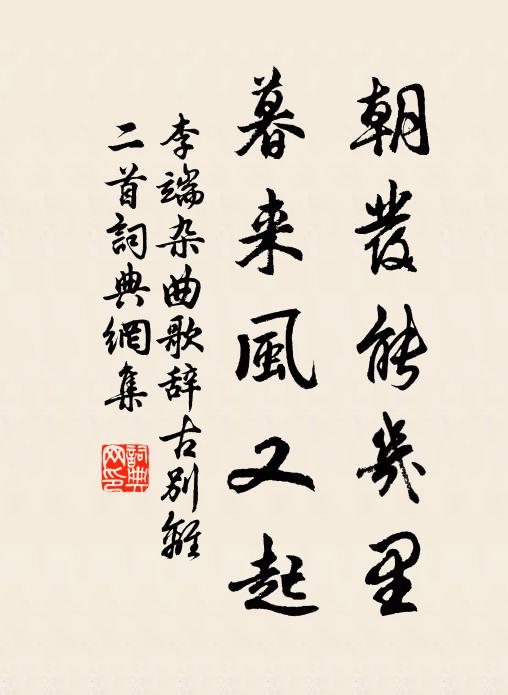 朝發能幾里
暮来風又起
李端杂曲歌辞古别離
二首詞典網集
詞典网印